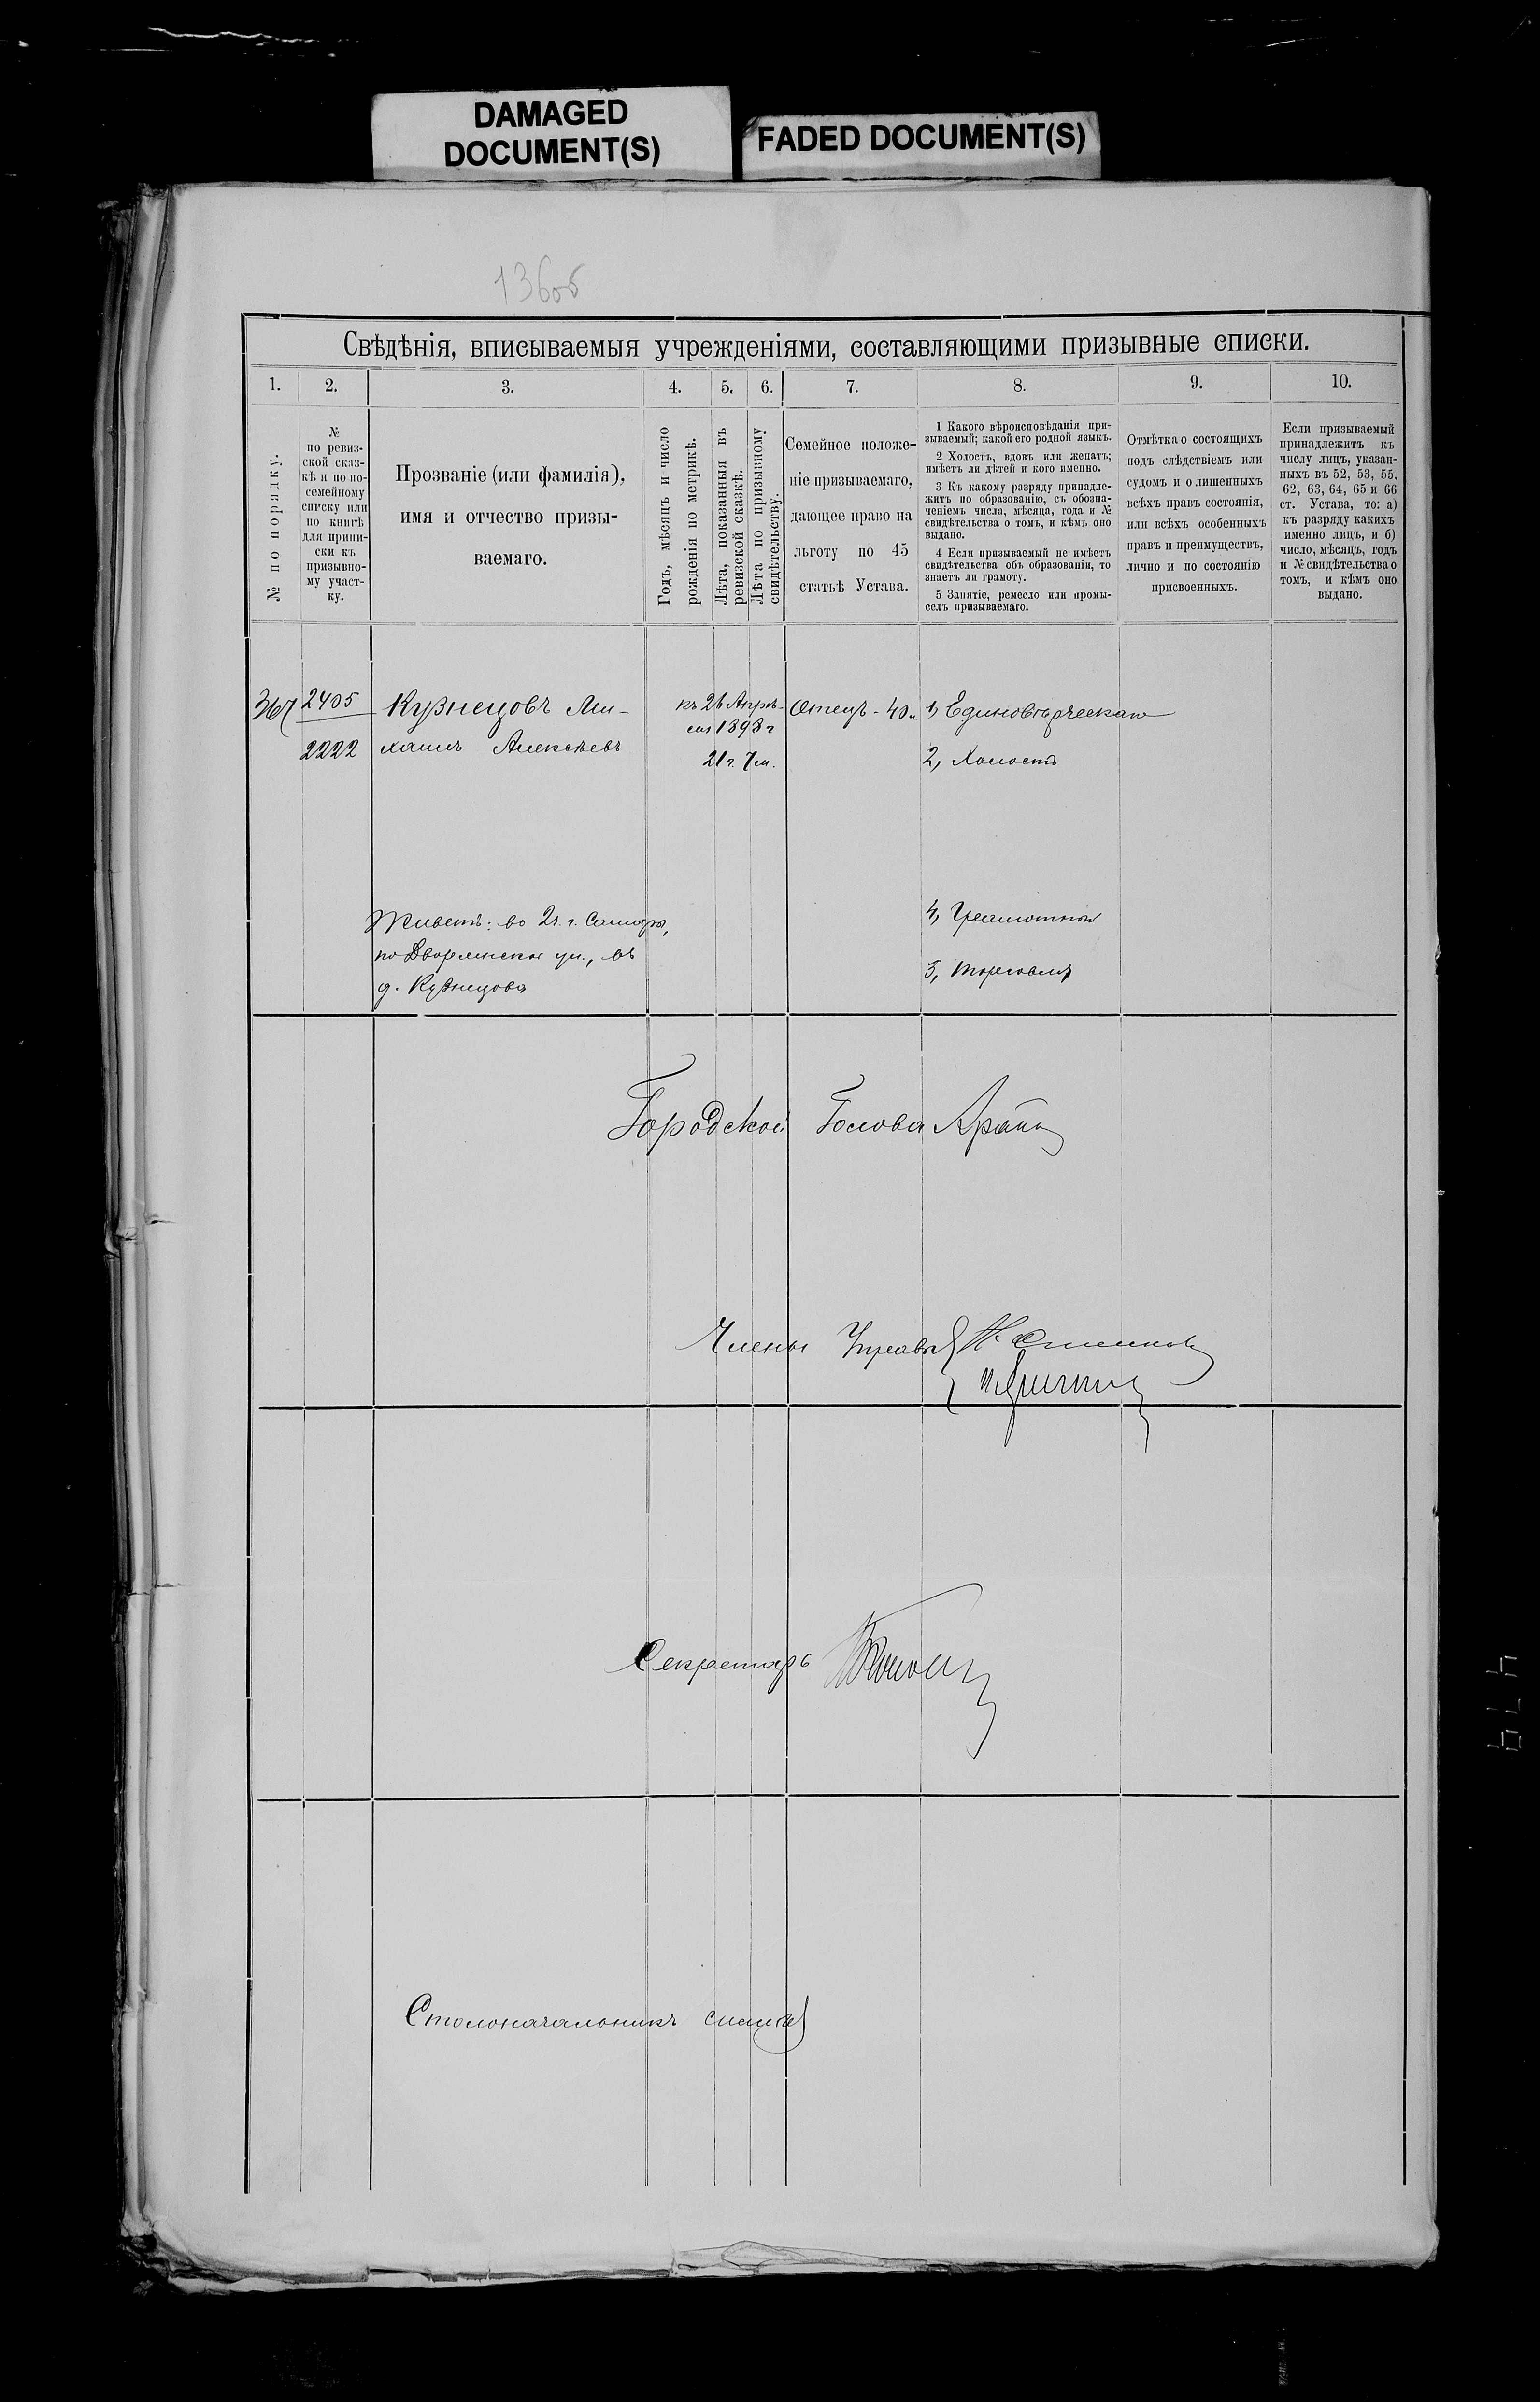 DAMAGED
DOCUMENT(S)
FADED DOCUMENT(S)
136об
Свѣдѣнія, вписываемыя учрежденіями, составляющими призывные списки.
1. 2. 3. 4. 5. 6. 7. 8. 9. 10.
№ по порядку.
№
по ревиз-
ской сказ-
кѣ и по по-
семейному
списку или
по книгѣ
для припи-
ски къ
призывно-
му участ-
ку.
Прозваніе (или фамилія),
имя и отчество призы-
ваемаго.
Годъ, мѣсяцъ и число
рожденія по метрикѣ.
Лѣта, показанныя въ
ревизской сказкѣ.
Лѣта по призывному
свидѣтельству.
Семейное положе-
ніе призываемаго,
дающее право на
льготу по 45
статьѣ Устава.
1 Какого вѣроисповѣданія при-
зываемый; какой его родной языкъ.
2 Холостъ, вдовъ или женатъ;
имѣетъ ли дѣтей и кого именно.
3 Къ какому разряду принадле-
житъ по образованію, съ обозна-
ченіемъ числа, мѣсяца, года и №
свидѣтельства о томъ, и кѣмъ оно
выдано.
4 Если призываемый не имѣетъ
свидѣтельства объ образованіи, то
знаетъ ли грамоту.
5 Занятіе, ремесло или промы-
селъ призываемаго.
Отмѣтка о состоящихъ
подъ слѣдствіемъ или
судомъ и о лишенныхъ
всѣхъ правъ состоянія,
или всѣхъ особенныхъ
правъ и преимуществъ,
лично и по состоянію
присвоенныхъ.
Если призываемый
принадлежитъ къ
числу лицъ, указан-
ныхъ въ 52, 53, 55,
62, 63, 64, 65 и 66
ст. Устава, то: а)
къ разряду какихъ
именно лицъ, и б)
число, мѣсяцъ, годъ
и № свидѣтельства о
томъ, и кѣмъ оно
выдано.
367
2405
2222
Кузнецовъ Ми-
хаилъ Алексѣевъ
къ 26 Апрѣ-
ля 1898 г
21 г. 7 м.
Отецъ - 40 л
1, Единовѣрческаго
2, Холостъ
Живетъ: во 2 ч. г. Самары,
по Дворянской ул., въ
д. Кузнецова
4, Грамотный
5, торговля
Городской Голова
Члены Управы
Секретарь
Столоначальникъ
479